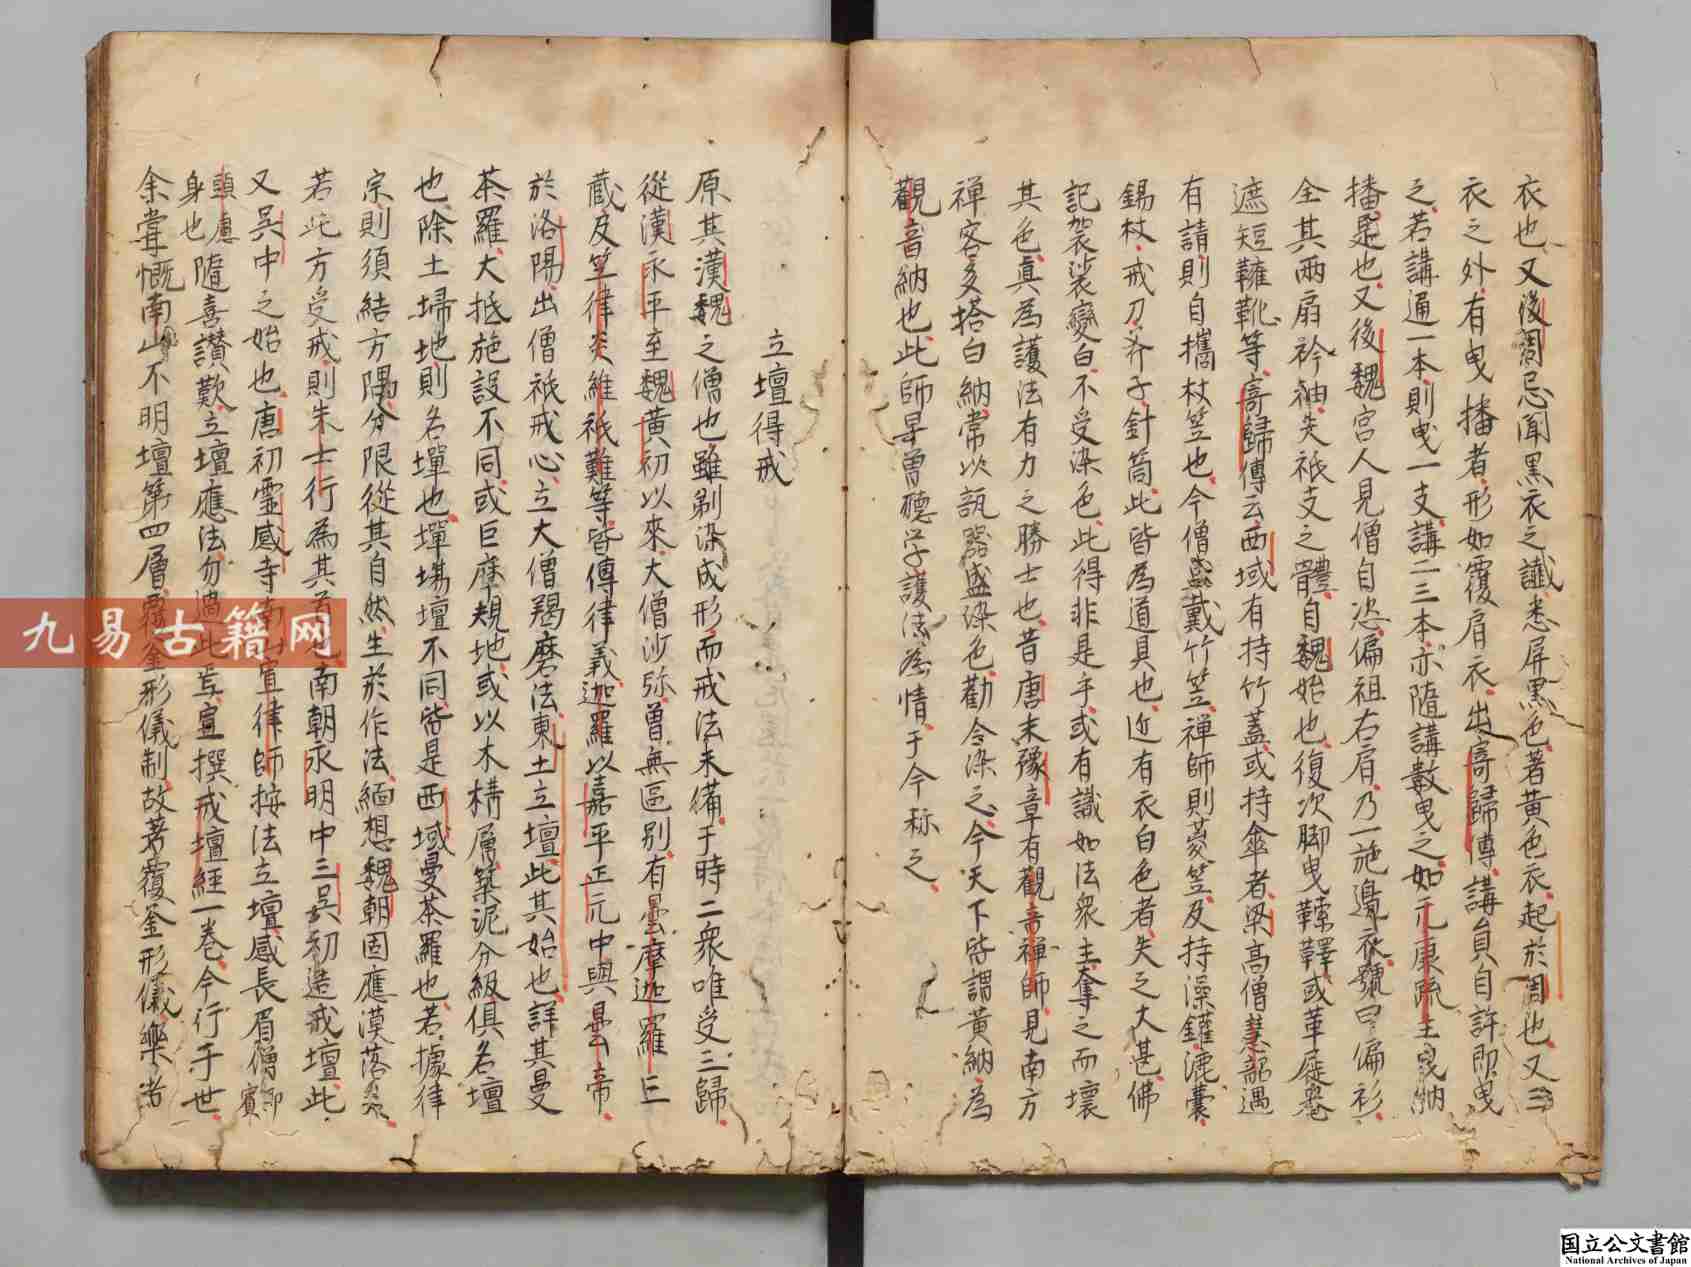 衣也又後周忌聞黑衣之讖悉屏黑色著黃色衣起於周也又
衣之外有曳播者形如覆肩衣出寄歸傳講員自許即曳
之若講通一本則曳一支講二三本亦隨講數曳之如元康疏主曳納
播是也又後魏宮人見僧自恣偏袒右肩乃一施邊衣號曰偏衫
全其兩扇衿袖失祇支之體自魏始也復次脚曳鞋或革屣卷
遮短靴等寄歸傳云西域有持竹蓋或持傘者梁高僧慧韶遇
有請則自攜杖笠也今僧盛戴竹笠禪師則菱笠及持澡鑵漉囊
錫杖戒刀斧子針筒此皆為道具也近有衣白色者失之大甚佛
記袈裟變白不受染色此得非是乎或有識如法衆主奪之而壞
其色真為護法有力之勝士也昔唐末豫章有觀音禪師見南方
禪客多搭白納常以瓿器盛染色勸令染之今天下皆謂黃納為
觀音納也此師早曾聽学護法為情于今称之
立壇得戒
原其漢魏之僧也雖剃染成形而戒法未備于時二衆唯受三歸
從漢永平至魏黃初以來大僧沙弥曾無區别有曇摩迦羅三
蔵及竺律炎維祇難等皆傳律義迦羅以嘉平正元中與曇帝
於洛陽出僧祇戒心立大僧羯磨法東土立壇此其始也詳其曼
茶羅大抵施設不同或巨摩規地或以木構層築泥分級俱名壇
也除土埽地則名墠也墠場壇不同皆是西域曼茶羅也若據律
宗則須結方隅分限從其自然生於作法緬想魏朝固應漠落矣
若此方受戒則朱士行為其首也南朝永明中三吳初造戒壇此
又吳中之始也唐初霊感寺南山宣律師按法立壇感長眉僧即賓
頭盧身也隨喜讃歎立壇應法勿過此焉宣撰戒壇經一卷今行于世
余嘗慨南山不明壇第四層覆釜形儀制故著覆釜形儀樂者
九易古籍网
国立公文書館
National Archives of Japan